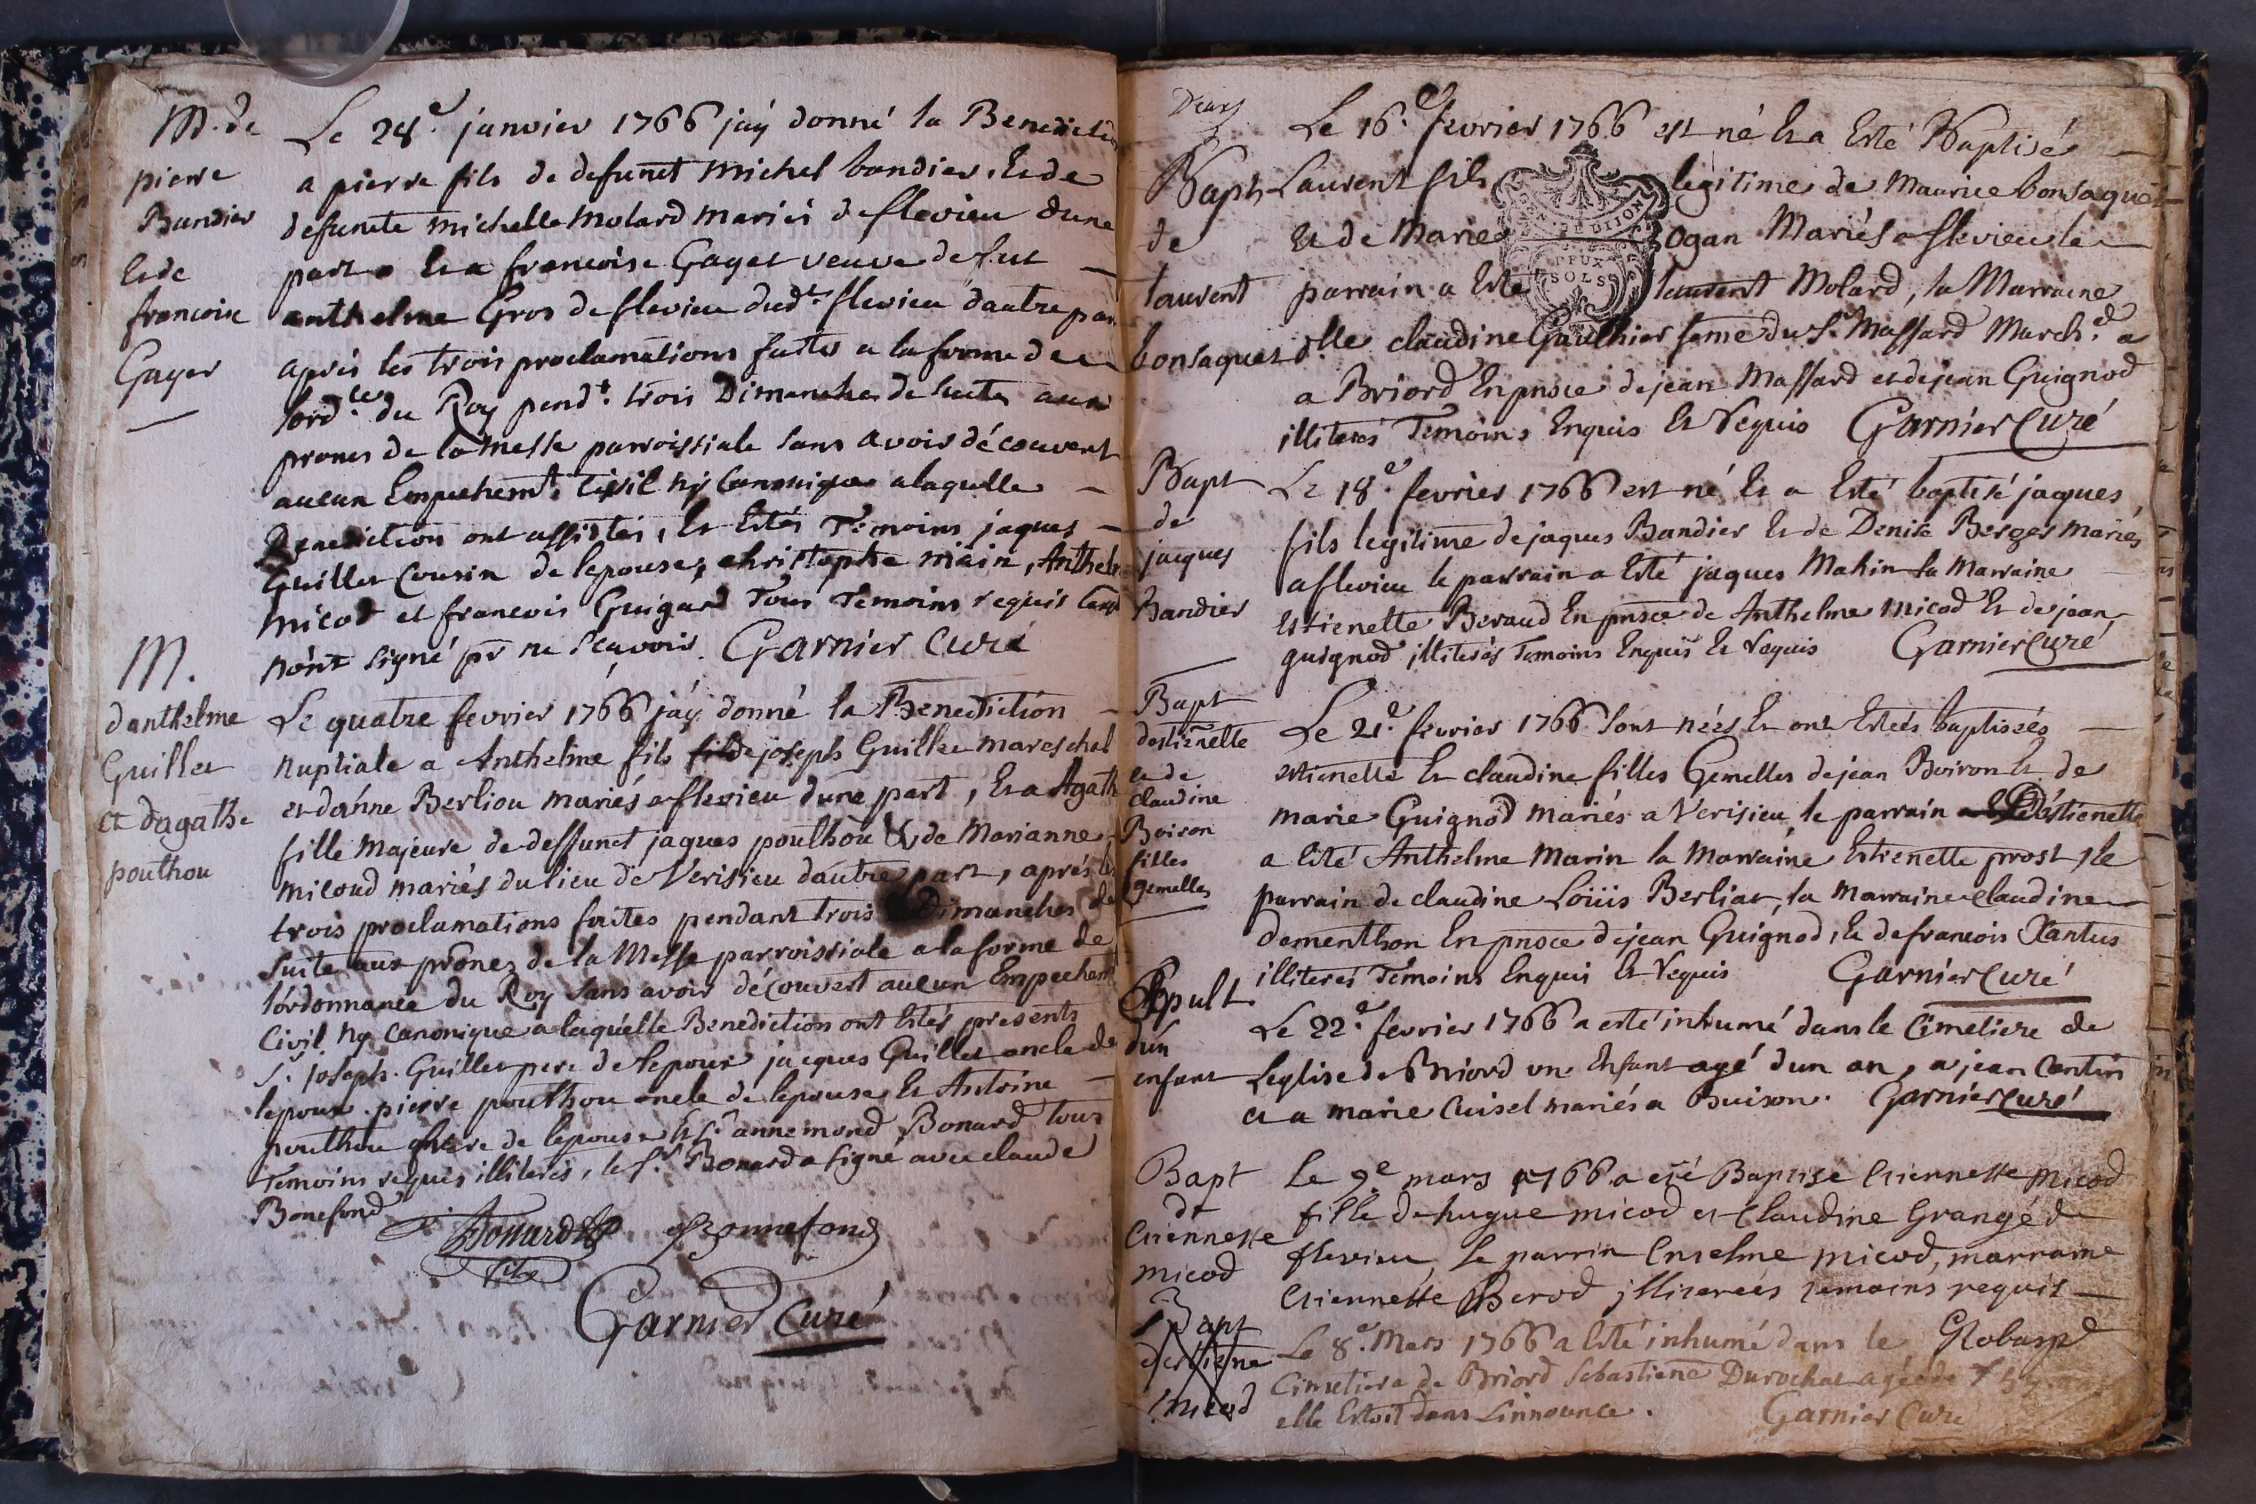 M. de
pierre
Bandier
Et de
francoise
Gayet
Le 28e. janvier 1766 jaÿ donné la Benediction
a pierre fils de defunct michel bandier, Et de
defuncte michelle Molard mariés de flevieu dune
part Et a francoise Gayet veuve de fut
anthelme Gros de flevieu dudt. flevieu dautre part
aprés les trois proclamations faites a la forme de
lordce du Roy pendt. trois Dimanches de suite aux
prones de la Messe parroissiale sans avoir découvert
aucun Empechemt. Civil ny Canonique a laquelle
Benediction ont assistés, Et Estés Temoins jaques
Guillet Cousin de lepouse, christophe miain, Anthelme
micod et francois Guigard Tous Temoins requis
nont signé pr ne scavoir. Garnier Curé
M.
danthelme
Guillet
et dagathe
pouthou
Le quatre fevrier 1766 jaÿ donné la Benediction
Nuptiale a Anthelme fils de joseph Guillet mareschal
et danne Berliou mariés a flevieu dune part, Et a Agathe
fille Majeure de deffunct jaques pouthou & de Marianne
micoud mariés du lieu de Verisieu dautre part, aprés les
trois proclamations faites pendant trois Dimanches de
suite aux prônes de la Messe parroissiale a la forme de
lordonnance du Roy sans avoir découvert aucun Empechemt
Civil ny Canonique a laquelle Benediction ont Estés presents
Sr. joseph Guillet pere de lepoux jacques Guillet oncle de
lepoux pierre pouthou oncle de lepouse Et Antoine
pouthou frere de lepouse Et Sr annemond Bonard tous
Temoins requis illiterés, le Sr. Bonard a signé avec claude
Bonefond
Bonard Bonnefond
Garnier Curé
Baph
de
laurent
bonsaquet
Le 16e. fevrier 1766 est né Et a Esté Baptisé
Laurent fils legitime de Maurice bonsaquet
Et de Marie ogan Mariés a flevieu le
parrain a Esté laurent Molard, la Marraine
dlle claudine Gaulthier feme du Sr Massard Marchd. a
a Briord En pnsce de jean Massard et de jean Guignod
illiterés Temoins Enquis Et Requis Garnier Curé
GEN DIJON
DEUX
SOLS
Bapt
de
jacques
Bandier
Le 18e. fevrier 1766 est né Et a Esté baptisé jaques
fils legitime de jaques Bandier Et de Denise Berger mariés
a flevieu le parrain a Esté jaques Mahin la Marraine
Estienette Beraud En pnsce de Anthelme micod Et de jean
guignod illiterés Temoins Enquis Et Requis Garnier Curé
Bapt
destienette
et de
claudine
Boiron
filles
gemelles
Le 21e. fevrier 1766 sont nées Et ont Estés baptisées
estienette Et claudine filles Gemelles de jean Boiron Et de
marie Guignod mariés a Verisieu, le parrain destienette
a Esté Anthelme Marin la Marraine Estienette prost, le
parrain de claudine Loüis Berliat, la marraine claudine
dementhon En pnsce de jean Guignod, Et de francois Xantus
illiterés Temoins Enquis Et Requis Garnier Curé
Sepult
dun
enfant
Le 22e. fevrier 1766 a esté inhumé dans le Cimetiere de
leglise de Briord un Enfant agé dun an, a jean Contin
et a marie Cuisel mariés a Buison. Garnier Curé
Bapt
de
Etiennette
micod
Le 9e mars 1766 a eté Baptisé Etiennette micod
fille de hugue micod et Claudine Grangé de
flevieu, le parrin Enselme micod, marraine
Etiennette Berod illitereés temoins requis
Bapt
destiene
micod
Le 8e. Mars 1766 a Esté inhumé dans le
Cimetiere de Briord Sebastiene Durochat agée de
elle Estoit dans Linnocence. Garnier Curé